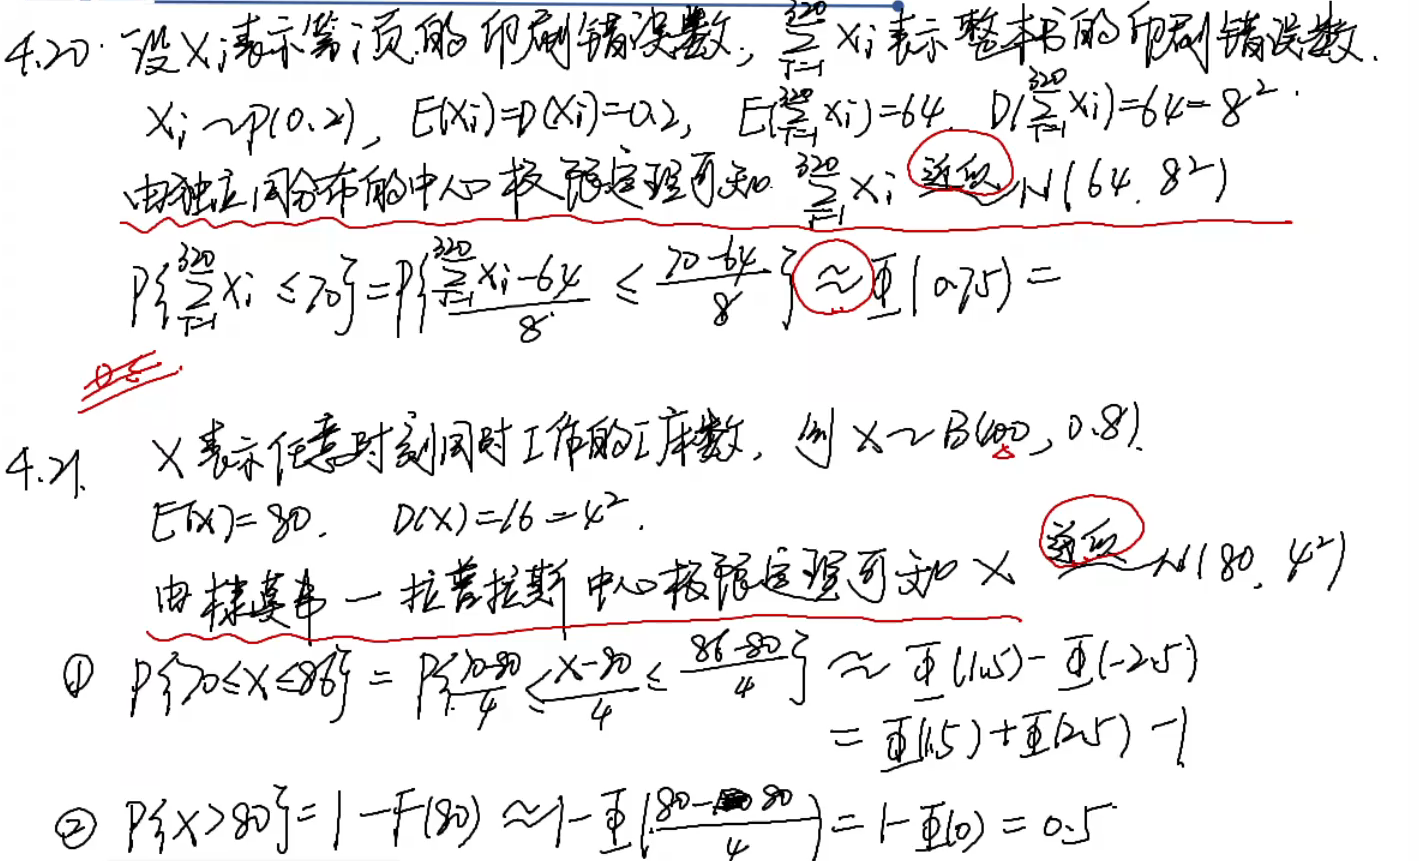 4.20. 设Xi表示第i页的印刷错误数, ∑_{i=1}^{320} Xi 表示整本书的印刷错误数.
Xi ~ P(0.2), E(Xi)=D(Xi)=0.2, E(∑_{i=1}^{320} Xi)=64, D(∑_{i=1}^{320} Xi)=64=8².
由独立同分布的中心极限定理可知 ∑_{i=1}^{320} Xi 近似~N(64, 8²)
P{∑_{i=1}^{320} Xi ≤70}=P{(∑_{i=1}^{320} Xi-64)/8 ≤ (70-64)/8} ≈ Φ(0.75) =
4.21. X表示任意时刻同时工作的工床数, 则 X~B(100, 0.8).
E(X)=80. D(X)=16=4².
由棣莫弗-拉普拉斯中心极限定理可知 X 近似~N(80, 4²)
① P{70≤X≤86} = P{(70-80)/4 ≤ (X-80)/4 ≤ (86-80)/4} ≈ Φ(1.5)-Φ(-2.5)
= Φ(1.5)+Φ(2.5)-1
② P{X>80}=1-F(80) ≈1-Φ((80-80)/4)=1-Φ(0)=0.5